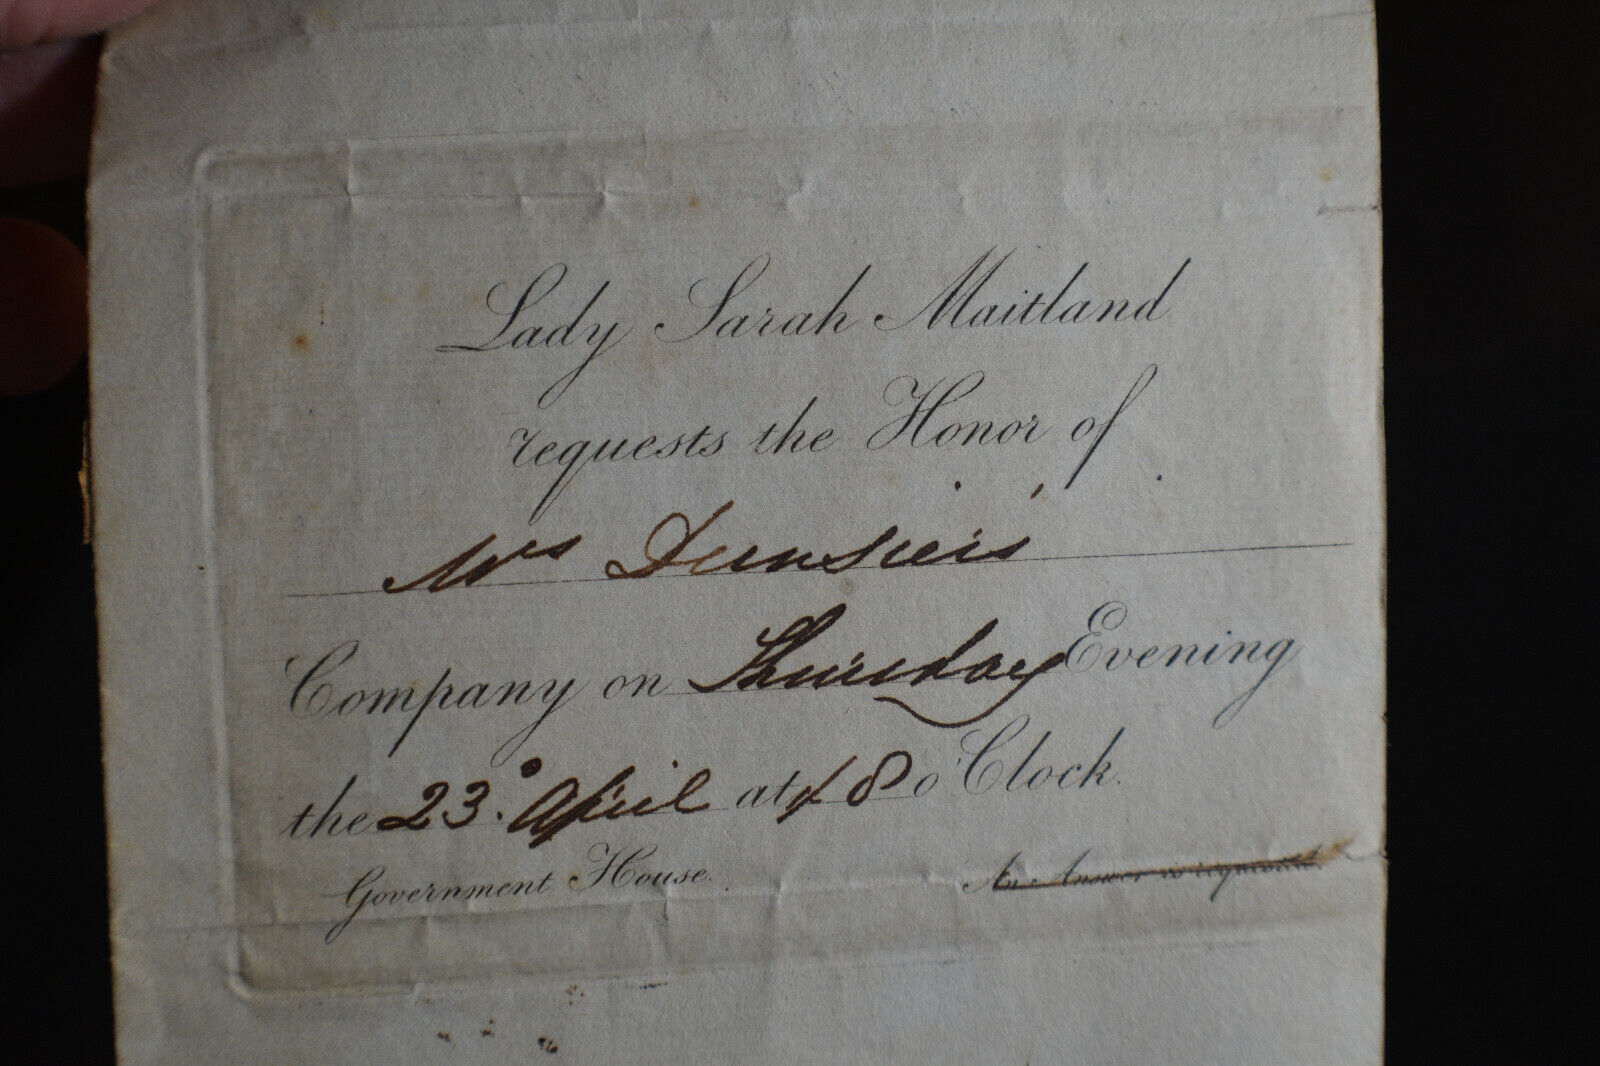 Lady Sarah Maitland
requests the Honor of
Mrs
Company on Thursday Evening
the 23. April at 8 o'Clock.
Government House.
An Answer is requested.